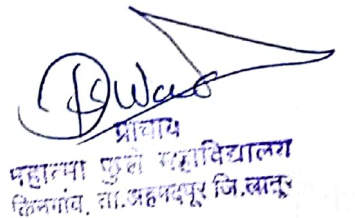 प्राचार्य
महात्मा फुले महाविद्यालय
किनगांव, ता.अहमदपूर जि.लातूर